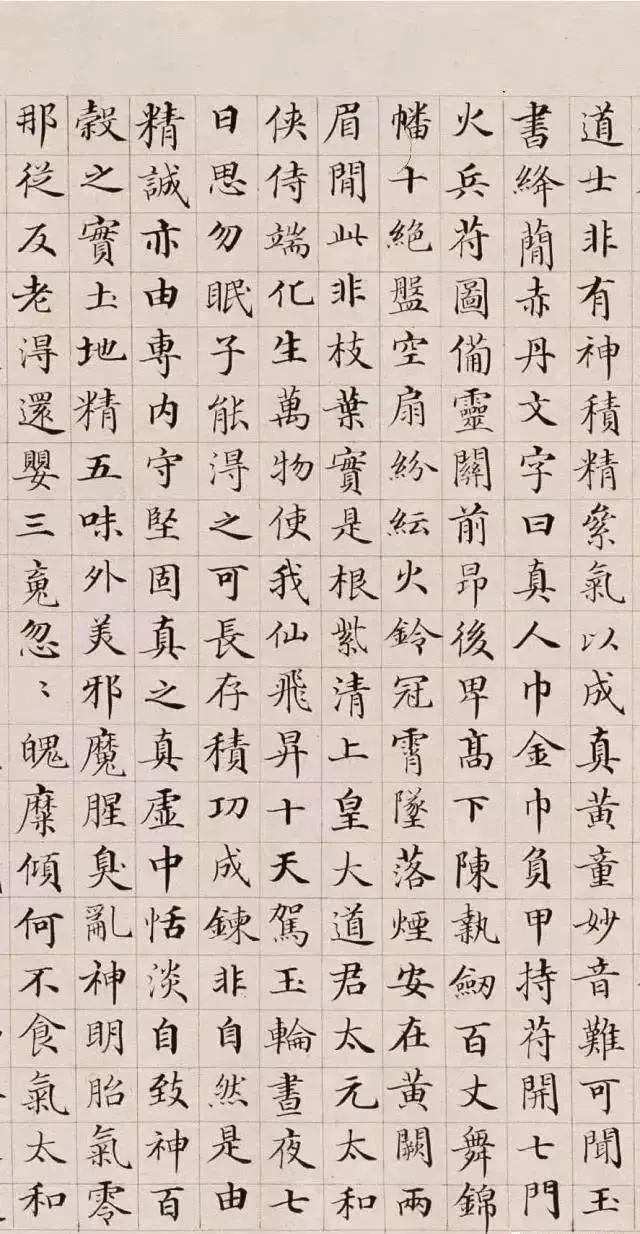 道士非有神積精絫氣以成真黃童妙音難可聞玉
書絳蕳赤丹文字曰真人巾金巾負甲持苻開七門
火兵苻圖備靈關前昂後卑髙下陳執劔百丈舞錦
幡十絕盤空扇紛紜火鈴冠霄墜落煙安在黃闕兩
眉閒此非枝葉實是根紫清上皇大道君太元太和
俠侍端化生萬物使我仙飛昇十天駕玉輪晝夜七
日思勿眠子能得之可長存積功成鍊非自然是由
精誠亦由專內守堅固真之真虛中恬淡自致神百
穀之實土地精五味外美邪魔腥臭亂神明胎氣零
那從反老得還嬰三魂忽〻魄糜傾何不食氣太和